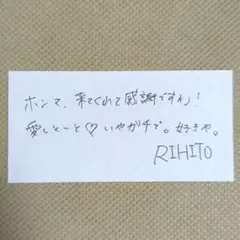 ホンマ、来てくれて感謝ですわ!
愛しと〜と♡いやガチで。好きや。
RIHITO